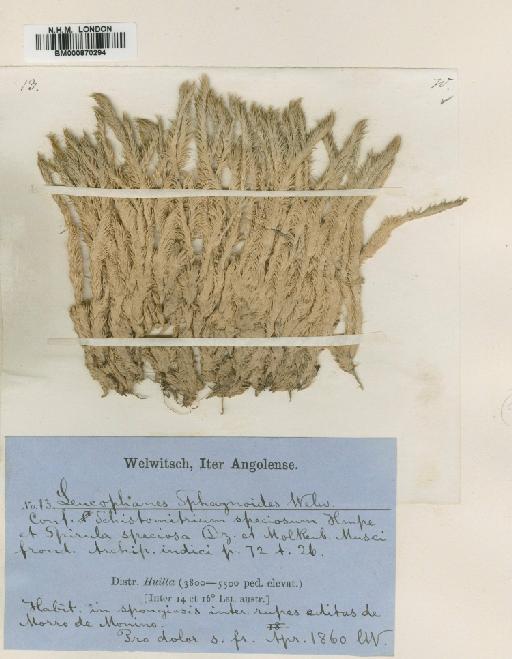 N.H.M. LONDON
BM000870294
13.
W.
Welwitsch, Iter Angolense.
No. 13. Leucophanes Sphagnoides Welw.
Conf. Schistomitrium speciosum Hmpe
et Spirula speciosa Dz. et Molkenb. Musci
front. Archip. indici p. 72 t. 26.
Distr. Huilla (3800—5500 ped. elevat.)
[Inter 14 et 16° Lat. austr.]
Habit. in spongiosis inter rupes editas de
Morro de Monino.
Pro dolor s. fr. Apr. 1860 W.